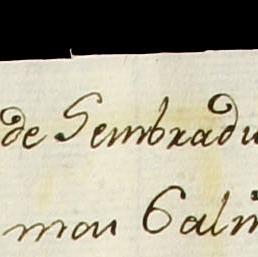 de Sembradu
mou Calin